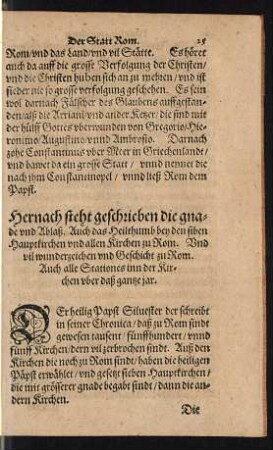 Der Statt Rom. 25
Rom/vnd das Land/vnd vil Stätte. Es höret
auch da auff die grosse Verfolgung der Christen/
vnd die Christen huben sich an zu mehren/ vnd ist
sieder nie so grosse verfolgung geschehen. Es sein
wol darnach Fälscher des Glaubens auffgestan-
den/alß die Arriani vnd ander Ketzer/ die sind mit
der hülff Gottes vberwunden von Gregorio/Hie-
ronimo/Augustino vnnd Ambrosio. Darnach
zohe Constantinus vber Meer in Griechenlandt/
vnd bawet da ein grosse Statt / vnnd nennet die
nach jhm Constantinopel / vnnd ließ Rom dem
Papst.
Hernach steht geschrieben die gna-
de vnd Ablaß. Auch das Heilthumb bey den siben
Hauptkirchen vnd allen Kirchen zu Rom. Vnd
vil wunderzeichen vnd Geschicht zu Rom.
Auch alle Stationes inn der Kir-
chen vber daß gantze jar.
DEr heilig Papst Siluester der schreibt
in seiner Chronica/ daß zu Rom sindt
gewesen tausent / fünffhundert / vnnd
fünff Kirchen/dern vil zerbrochen sindt. Auß den
Kirchen die noch zu Rom sindt/ haben die heiligen
Päpst erwählet / vnd gesetzt sieben Hauptkirchen /
die mit grösserer gnade begabt sindt / dann die an-
dern Kirchen.
Die